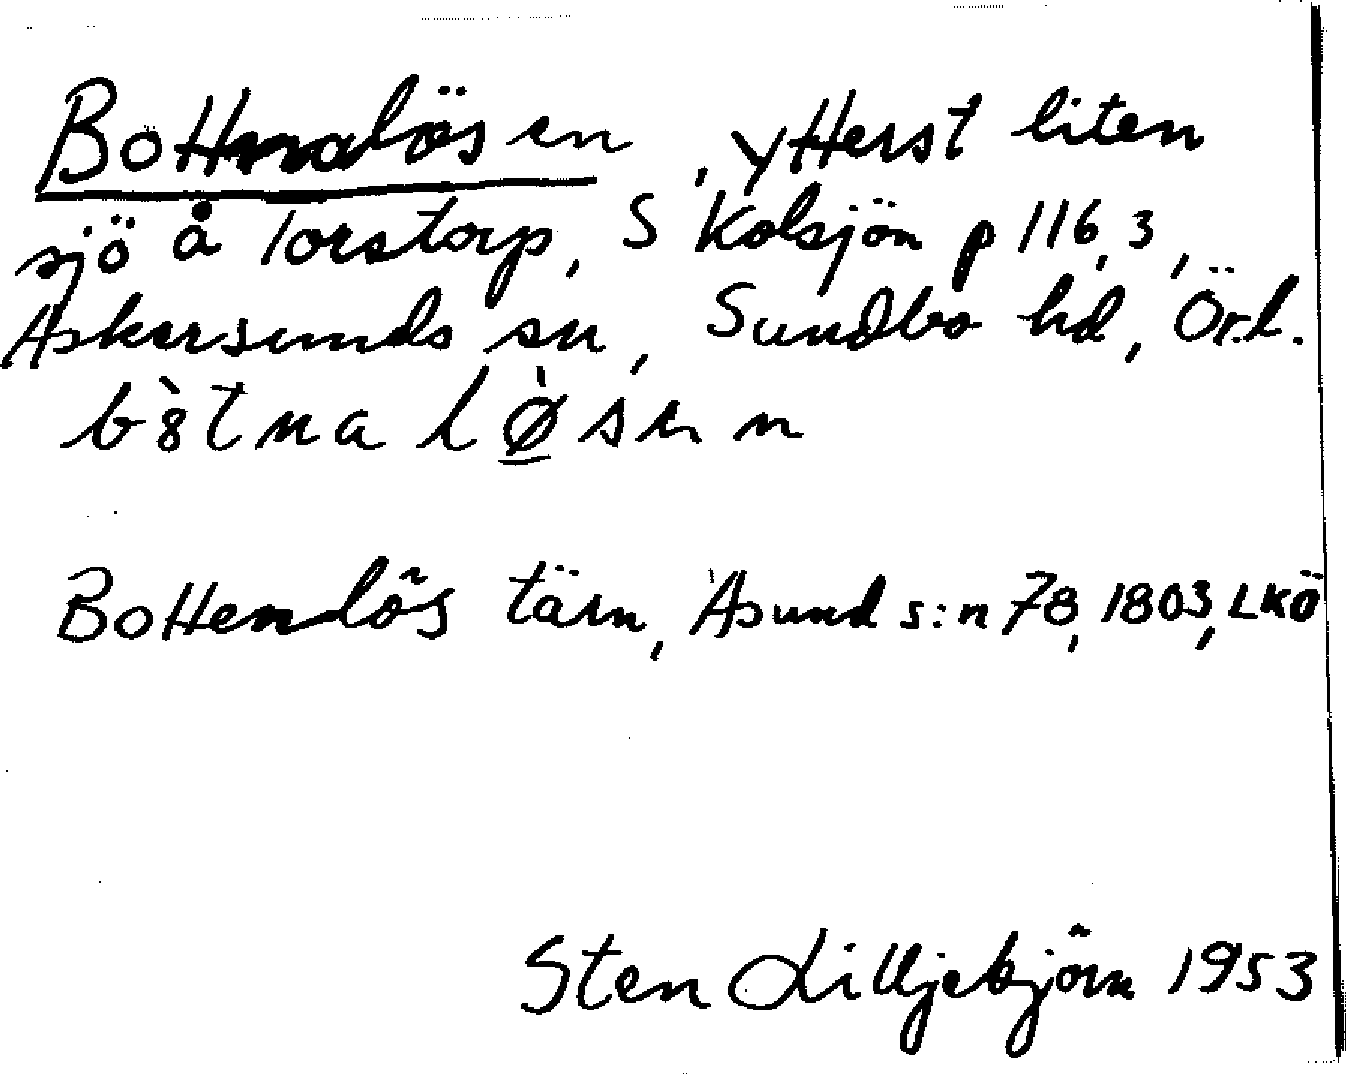 Böttnalösen, ytterst liten
sjö å Torstorp, S Kolsjön p 116,3,
Askersunds sn, Sundbo hd, Örl.
b8̀tnalø̀sen
Bottenlös tärn, Åsund s:n 78, 1803, LKÖ
Sten Lilljebjörn 1953